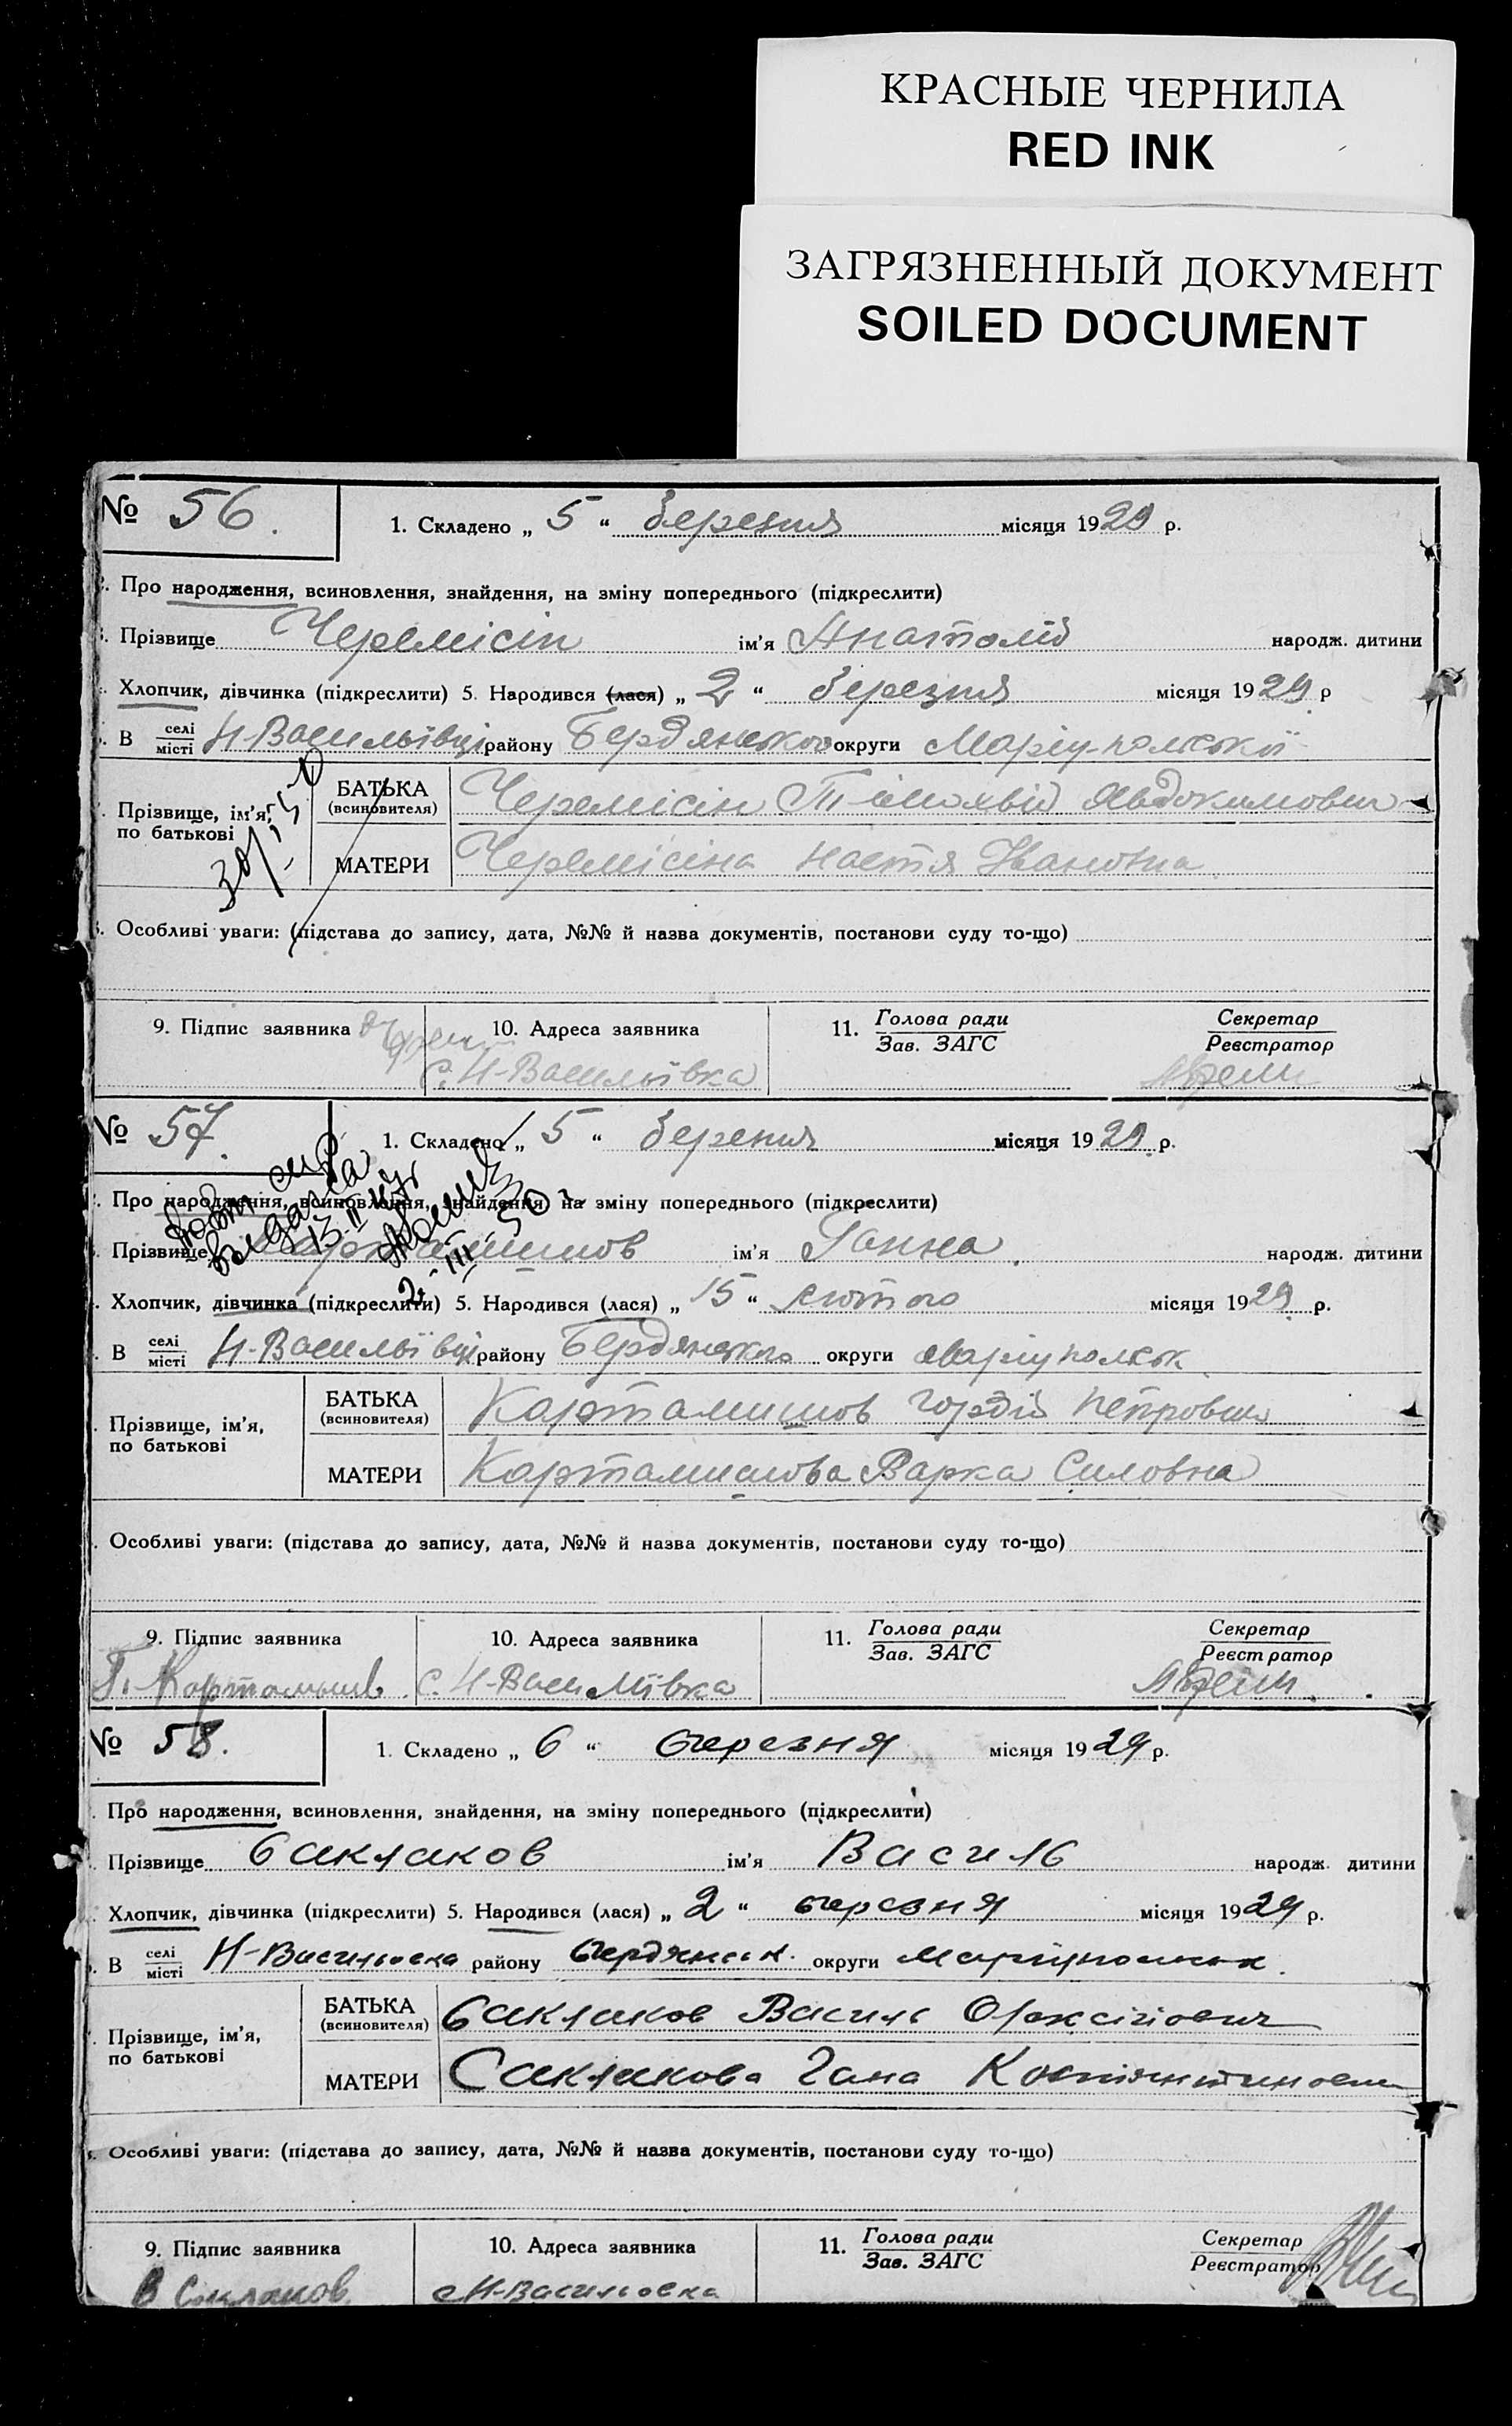 КРАСНЫЕ ЧЕРНИЛА
RED INK
ЗАГРЯЗНЕННЫЙ ДОКУМЕНТ
SOILED DOCUMENT
№ 56.
1. Складено „ 5 “ березня місяця 1929 р.
Про народження, всиновлення, знайдення, на зміну попереднього (підкреслити)
Прізвище Черемісін ім'я Анатолій народж. дитини
Хлопчик, дівчинка (підкреслити) 5. Народився (лася) „ 2 “ березня місяця 1929 р
В селі місті Н-Васильївці району Бердянського округи Маріу-польської
Прізвище, ім'я, по батькові
БАТЬКА (всиновителя) Черемісін Тімохвій Явдокимович
МАТЕРИ Черемісіна Настя Івановна
Особливі уваги: (підстава до запису, дата, №№ й назва документів, постанови суду то-що)
9. Підпис заявника 10. Адреса заявника 11. Голова ради Зав. ЗАГС Секретар Реєстратор
с. Н-Васильївка
№ 57.
1. Складено „ 5 “ березня місяця 1929 р.
Про народження, всиновлення, знайдення, на зміну попереднього (підкреслити)
Прізвище Картамишов ім'я Ганна народж. дитини
Хлопчик, дівчинка (підкреслити) 5. Народився (лася) „ 15 “ лютого місяця 1929 р.
В селі місті Н-Васильївці району Бердянського округи Маріупольськ.
Прізвище, ім'я, по батькові
БАТЬКА (всиновителя) Картамишов Гордій Петрович
МАТЕРИ Картамишова Варка Силовна
Особливі уваги: (підстава до запису, дата, №№ й назва документів, постанови суду то-що)
9. Підпис заявника 10. Адреса заявника 11. Голова ради Зав. ЗАГС Секретар Реєстратор
Г. Картамышев с. Н-Васильївка
№ 58.
1. Складено „ 6 “ березня місяця 1929 р.
Про народження, всиновлення, знайдення, на зміну попереднього (підкреслити)
Прізвище Саклаков ім'я Василь народж. дитини
Хлопчик, дівчинка (підкреслити) 5. Народився (лася) „ 2 “ березня місяця 1929 р.
В селі місті Н-Васильовка району Бердянськ. округи Маріупольськ.
Прізвище, ім'я, по батькові
БАТЬКА (всиновителя) Саклаков Василь
МАТЕРИ Саклакова Гана
Особливі уваги: (підстава до запису, дата, №№ й назва документів, постанови суду то-що)
9. Підпис заявника 10. Адреса заявника 11. Голова ради Зав. ЗАГС Секретар Реєстратор
В Саклаков с Н-Васильовка